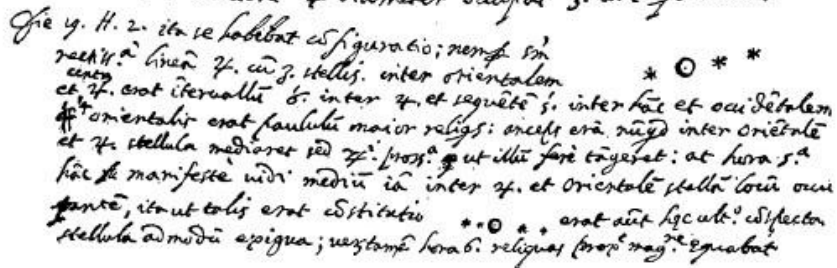 Die 19. H. 2. ita se habebat cō figuratio; nempe sm̄
rectiss.ᵃ̄ lineā ♃. cū 3. stellis. inter orientalem
centrū
et ♃. erat īteruallū 6. inter ♃. et sequētē 5. inter hāc et occidētalem
4. orientalis erat paululū maior reliqs: anceps erā nūqd inter oriētalē
et ♃. stellula mediaret sed ♃.ⁱ prox.ᵃ ut illū ferè tāgeret: at hora 5.ᵃ
hāc manifestè uidi mediū iā inter ♃. et orientalē stellā locū occu
pantē, ita ut talis erat cōstitutio erat aūt hęc ult.º cōspecta
stellula admodū exigua; ueꝛtamē hora 6. reliquas prop.ᵉ mag.ⁿᵉ equabat